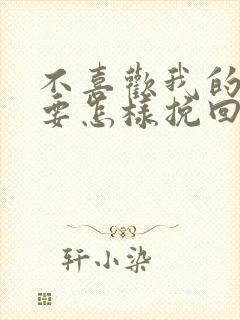 不喜歡我的
要怎樣挽回
轩小染